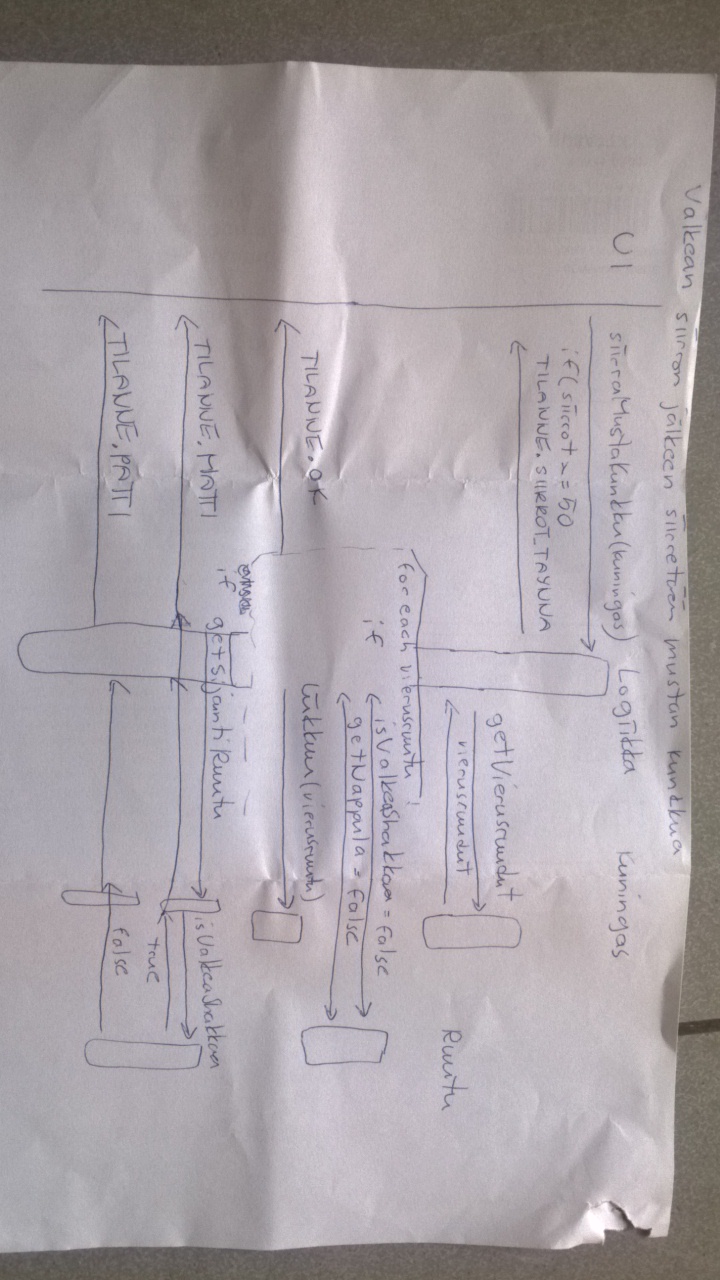 Valkean siirron jälkeen siirretään mustan kunkkua
UI
siirraMustaKunkku(kuningas)
Logiikka
Kuningas
if(siirrot >= 50
TILANNE.SIIRROT_TAYNNA
getVierusruudut
vierusruudut
Ruutu
for each vierusruutu
if
isValkeaShakkaa = false
getNappula = false
TILANNE.OK
liikkuu(vierusruutu)
if
getSijaintiRuutu
TILANNE.MATTI
isValkeaShakkaa
true
TILANNE.PATTI
false